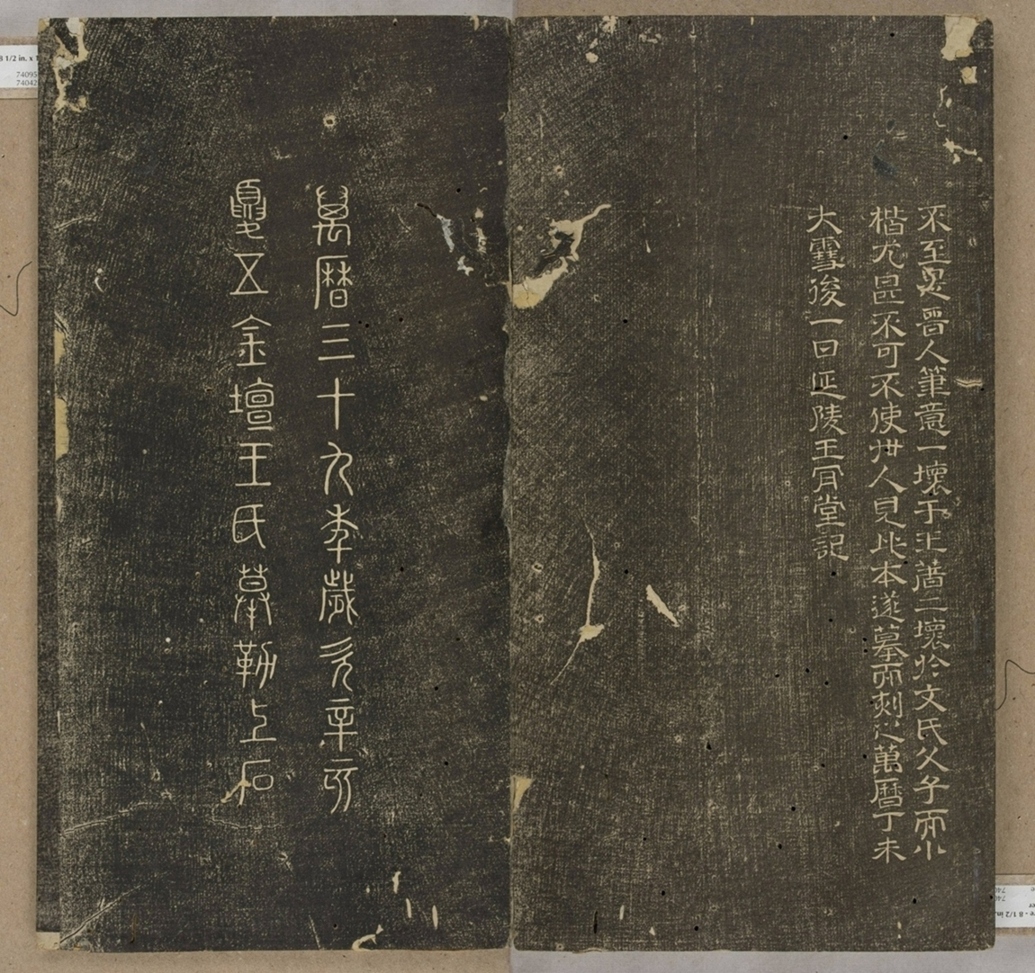 不至是晉人筆意一壞于王蓍二壞於文氏父子而小
楷尤甚不可不使世人見此本遂摹而刻之萬曆丁未
大雪後一日延陵王肎堂記
萬曆三十九年歲次辛亥
夏五金壇王氏摹勒上石
8 1/2 in. x 1